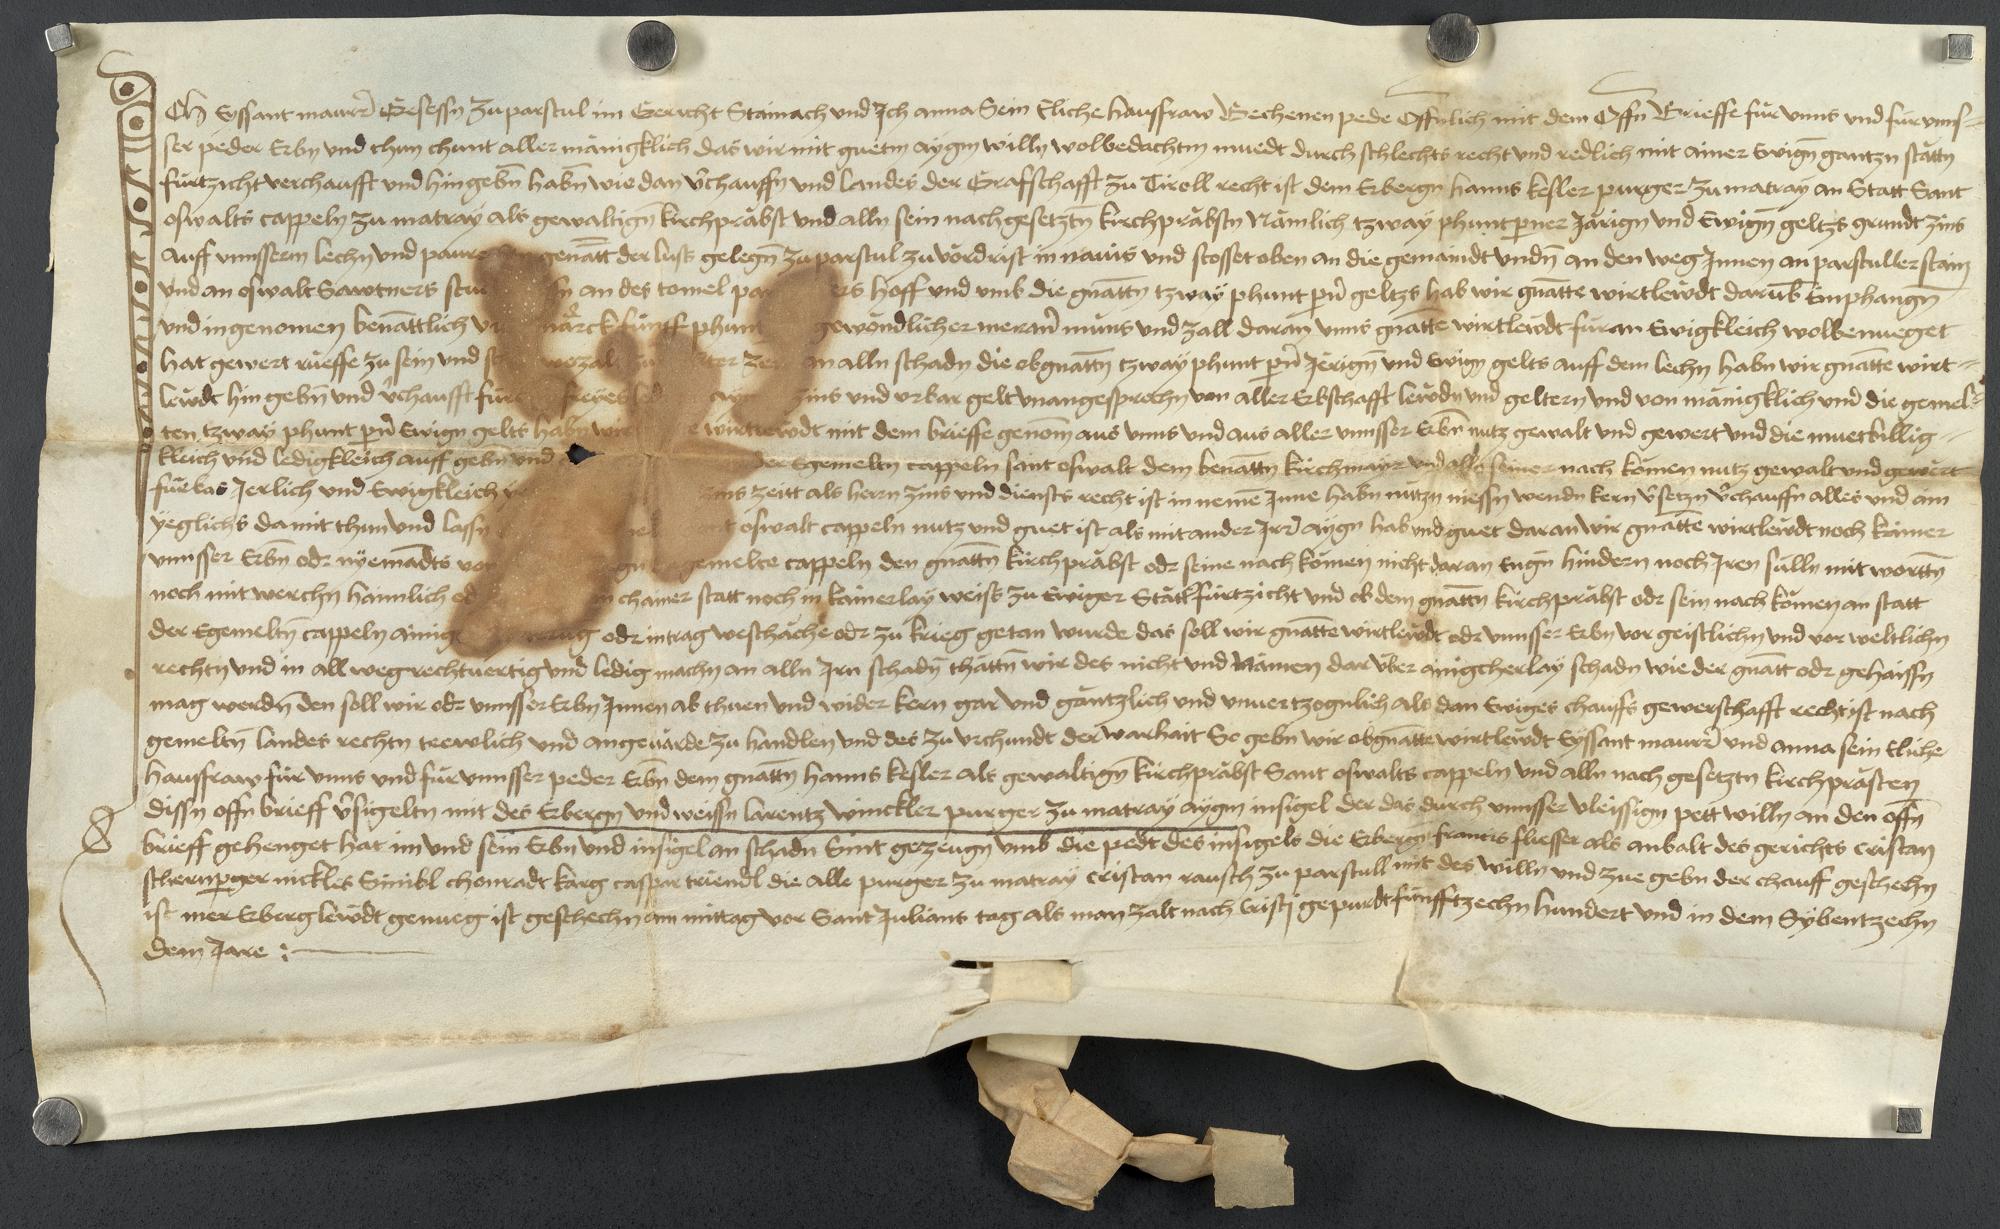 Ich Eyssant maurer Gesessn zu parstul im Gericht Stainach und Ich anna Sein Eliche hausfraw Bechenen pede Offnlich mit dem Offn Brieffe für vnns vnd für vnns=
ser peder Erbn vnd thun chunt aller mänigklich das wir mit guetm aygm willn wolbedachtm muedt durch schlechts recht vnd redlich mit ainer Ewign gantzn stättn
fürtzicht verchaufft vnd hingebn habn wie dan v̈chauffn vnd Landes der Grafschafft zu Tiroll recht ist dem Erbergn hanns kesler purger zu matray an Statt Sant
oswalts cappeln zu matray als gewaltign kirchpräbst vnd alln sein nachgesetztn kirchpräbstn Nämlich tzway phunt perner Järign vnd Ewign geltzs grundt zins
Auff vnnsserm lechn vnd genātt der lusk gelegn zu parstul zu vördrist in nauis vnd stosset oben an die gemaindt vndn an den weg Innen an parstuller stain
vnd an oswalt Sawtners an des tomel hoff vnd vmb die gnāttn tzway phunt pn̄ geltzs hab wir gnātte wirtlewdt darumb Emphangn
vnd ingenomen benāttlich märck fünff phunt gewöndlicher meraner müns vnd zall daran vnns gnātte wirtlewdt füran Ewigkleich wolbenueget
hat gewert rueffe zu sein vnd an alln schadn die obgnāttn tzway phunt pn̄ Jerign vnd Ewign gelts auff dem lechn habn wir gnātte wirt=
lewdt hin gebn vnd v̈chaufft für freyes zins vnd vrbar gelt vnangesprochn von aller Erbschafft lewdn vnd geltern vnd von mänigklich vnd die gemel=
ten tzway phunt pn̄ Ewign gelts habn wir wirtlewdt mit dem brieffe genom̄ aus vnns vnd aus aller vnnsser Erbn nutz gewalt vnd gewert vnd die muetbillig=
kleich vnd ledigkleich auff gebn vnd der Egemeltn cappeln sant oswalt dem benāttn kirchmayr vnd alle seiner nach komen nutz gewalt vnd gewert
fürbas Jerlich vnd Ewigkleich zins zeitt als hern zins vnd diensts recht ist in nemē Inne habn nützn niessn wendn kern v̈setzn v̈chauffn alles vnd am
yeglichs damit thun vnd lassn oswalt cappeln nutz vnd guet ist als mit ander Irr aygn hab vnd guet daran wir gnātte wirtlewdt noch kainer
vnnsser Erbn odr nyemādts von gemelte cappeln den gnāttn kirchpräbst odr seine nach komen nicht daran Engn hindern noch Iren sülln mit worttn
noch mit werchn haimlich chainer statt noch in kainerlay weisß zu Ewiger Stätt fürtzicht vnd ob dem gnāttn kirchpräbst odr sein nach komen an statt
der Egemeltn cappeln ainig odr intrag weschäche odr zu krieg getan wurde das soll wir gnātte wirtlewdt odr vnnsser Erbn vor geistlichn vnd vor weltlichn
rechtn vnd in all weg rechtuertig vnd ledig machn an alln Irn schadn thättn wir des nicht vnd Nämen dar vber ainigcherlay schadn wie der gnātt odr gehaissn
mag werdn den soll wir odr vnnsser Erbn Innen ab thuen vnd wider kern gar vnd gäntzlich vnd vnuertzognlich als dan Ewiges chauffs gewerschafft recht ist nach
gemeltn landes rechtn trewlich vnd angeuärde zu handlen vnd des zu vrchundt der warhait So gebn wir obgnātte wirtlewdt Eyssant maurer vnd anna sein Eliche
hausfraw für vnns vnd für vnnsser peder Erbn dem gnāttn hanns kesler als gewaltign kirchpräbst Sant oswalts cappeln vnd alln nach gesetztn kirchprästen
dissn offn brieff v̈sigeltn mit des Erbergn vnd weissn larentz winckler purger zu matray aygm insigel der das durch vnnsser vleissign pett willn an den offn
brieff gehenget hat im vnd sein Erbn vnd insigel an schadn Sint getzeugn vmb die pedt des insigels die Erbergn francis fliesser als anbalt des gerichts cristan
schernperger nickles Sinibl chonradt karg caspar triendl die alle purger zu matray cristan rausch zu parstull mit des willn vnd zue gebn der chauff geschehn
ist mer Erberg lewdt genueg ist geschechn am mittag vor Sant Julians tag als man zalt nach cristj gepurdt fünfftzechn hundert vnd in dem Sybentzechn
dem Jare :